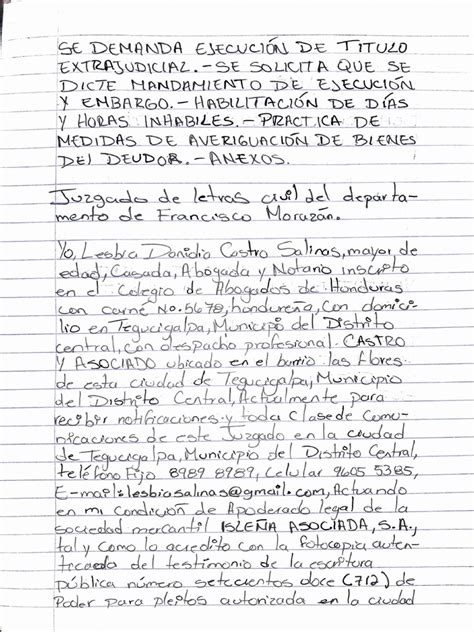 SE DEMANDA EJECUCIÓN DE TITULO
EXTRAJUDICIAL.-SE SOLICITA QUE SE
DICTE MANDAMIENTO DE EJECUCIÓN
Y EMBARGO.-HABILITACIÓN DE DÍAS
Y HORAS INHABILES.-PRACTICA DE
MEDIDAS DE AVERIGUACIÓN DE BIENES
DEL DEUDOR.-ANEXOS.
Juzgado de letras civil del departa-
mento de Francisco Morazán.
Yo, Lesbia Donidia Castro Salinas, mayor de
edad, Casada, Abogada y Notario inscrito
en el Colegio de Abogados de Honduras
con carné No.5678, hondureña, con domici-
lio en Tegucigalpa, Municipio del Distrito
central, con despacho profesional CASTRO
Y ASOCIADO ubicado en el barrio las flores
de esta ciudad de Tegucigalpa, Municipio
del Distrito Central, Actualmente para
recibir notificaciones y toda Clase de Comu-
nicaciones de este Juzgado en la ciudad
de Tegucigalpa, Municipio del Distrito Central,
teléfono Fijo 8989 8989, Celular 9605 5385,
E-mail:lesbiasalinas@gmail.com, Actuando
en mi condición de Apoderado legal de la
sociedad mercantil ISLEÑA ASOCIADA, S.A.,
tal y como lo acredito con la fotocopia auten-
ticada del testimonio de la escritura
pública número setecientos doce (712) de
Poder para pleitos autorizada en la ciudad